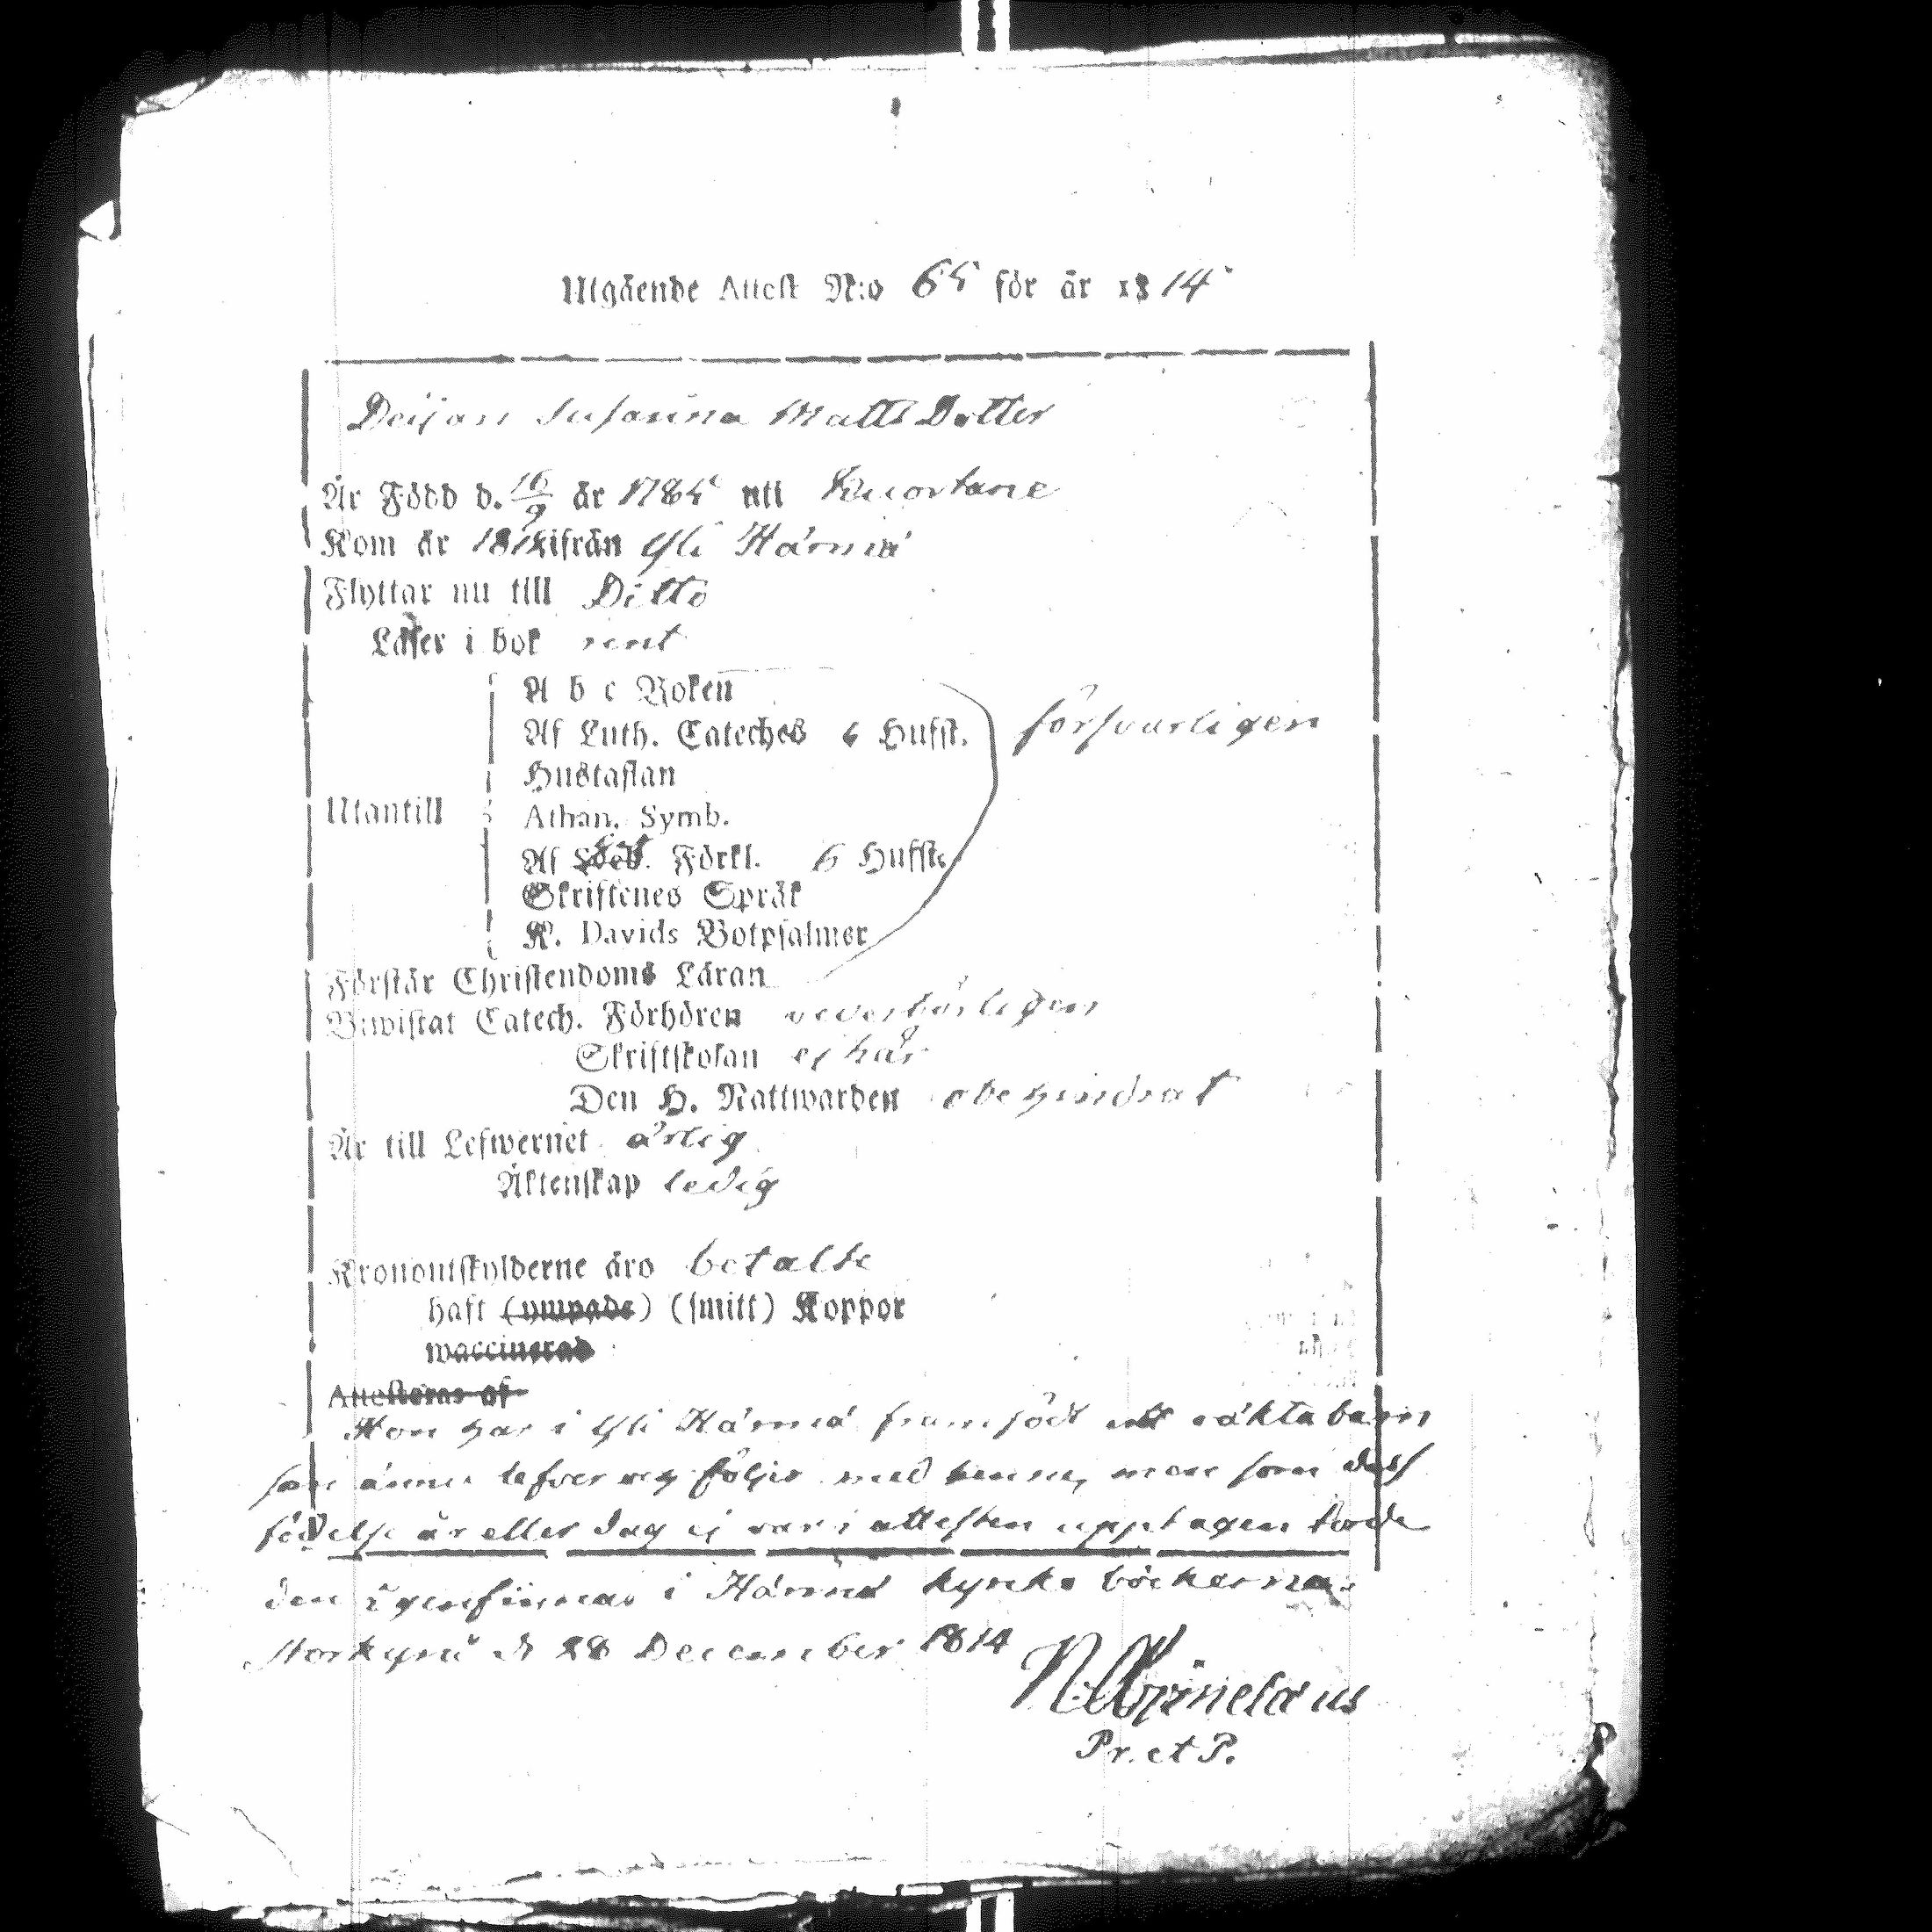 Utgående Attest N:o 65 för år 1814
Deijan Susanna Matts Dotter
Är Född d. 16/9 år 1785 uti Kuortane
Kom år 1814 ifrån Yli Härmä
Flyttar nu till Ditto
Läser i bok rent
A b c Boken
Af Luth. Cateches 6 Hufst. försvarligen
Hustaflan
Utantill
Athan. Symb.
Af Förkl. 6 Hufst.
Skriftenes Språk
K. Davids Botpsalmer
Förstår Christendoms Läran
Biwistat Catech. Förhören vederbörligen
Skriftskolan ej här
Den H. Nattwarden obehindrat
Är till Lefwernet ärlig
Äktenskap ledig
Kronoutskylderne äro betalte
haft (ympade) (smitt) Koppor
waccinerad
Attesteras af
Hon har i Yli Härmä framfödt ett oäkta barn
som ännu lefver och följer med henne, men som dess
födelse år eller dag ej var i attesten upptagen torde
den igenfinnas i Härmä kyrko böckerna.
Storkyrö d 28 December 1814
N. Aejmelæus
Pr. et P.